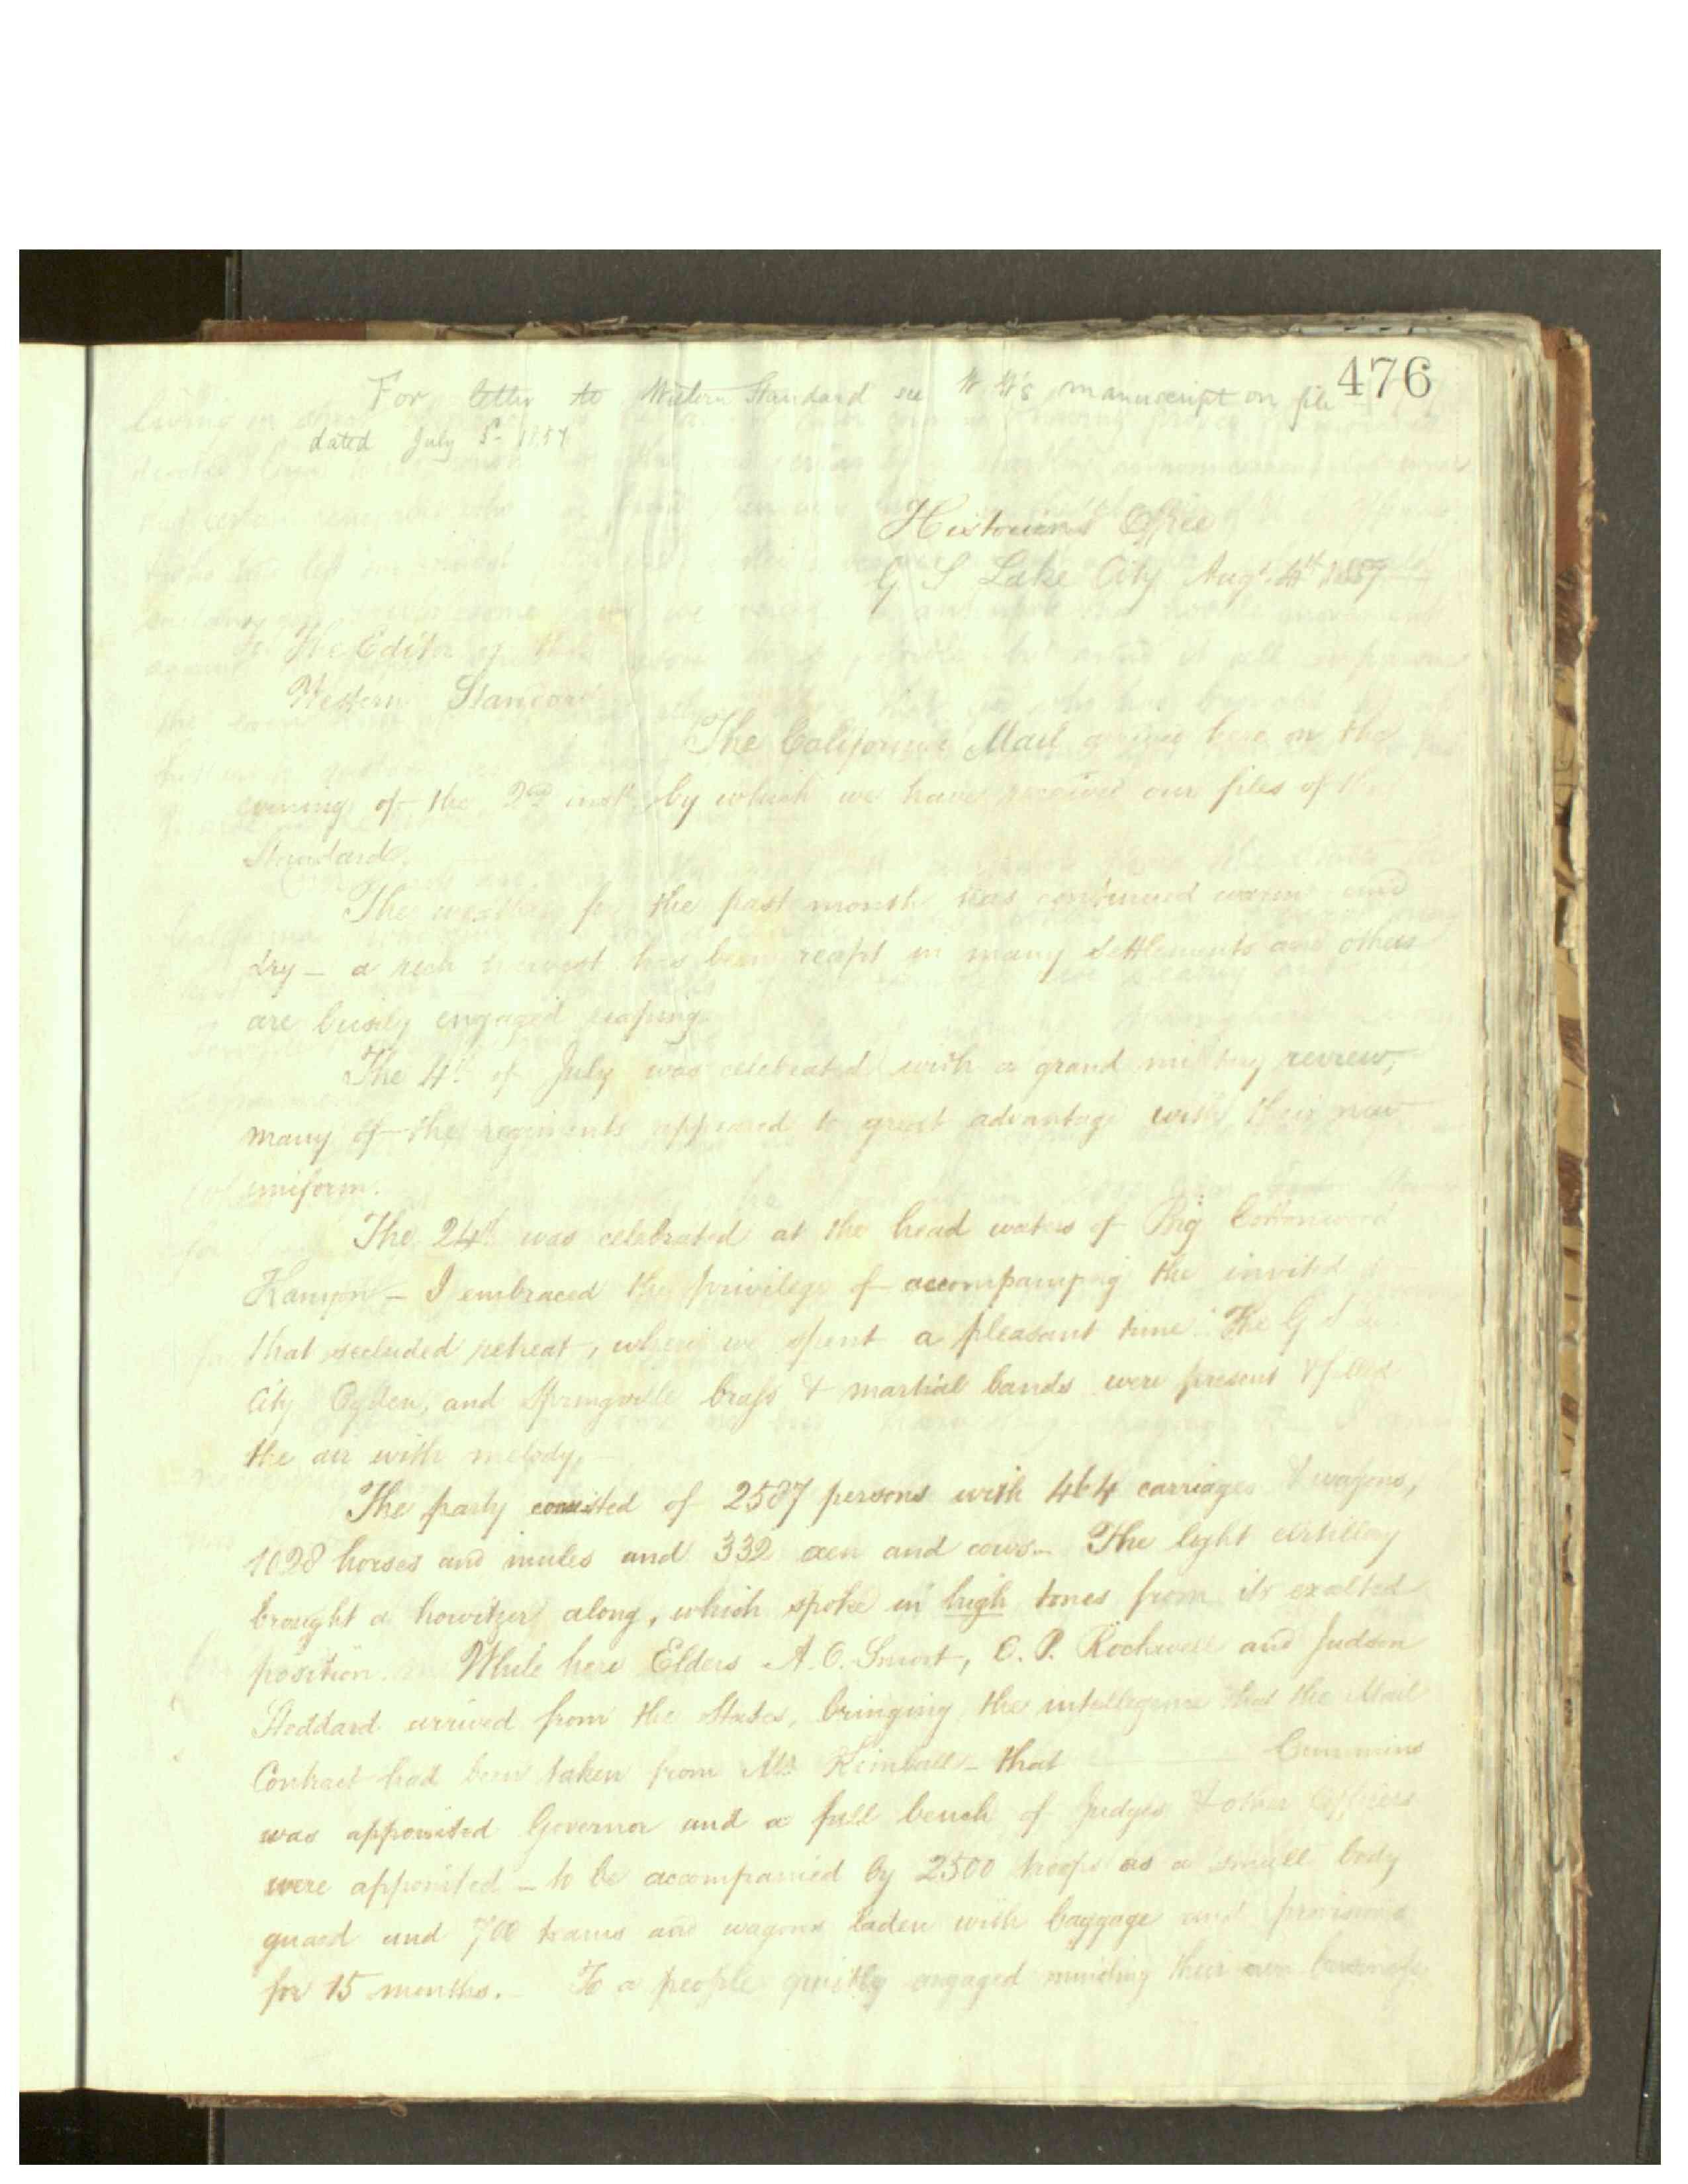 476
For letter to Western Standard see W W's manuscript on file
dated July 5- 1857
Historian's Office
G. S Lake City Augt. 4th 1857
To The Editor of the
Western Standard
The California Mail arrived here on the
evening of the 2nd inst. by which we have received our files of the
Standard.
The weather for the past month has continued warm and
dry - a rich harvest has been reapt in many settlements and others
are busily engaged reaping.
The 4th of July was celebrated with a grand military review,
many of the regiments appeared to great advantage with their new
uniform.
The 24th was celebrated at the head waters of Big Cottonwood
Kanyon - I embraced the privilege of accompanying the invited to
that secluded retreat, where we spent a pleasant time. The G S
City Ogden, and Springville brass & martial bands were present & filled
the air with melody, -
The party consisted of 2587 persons with 464 carriages & wagons,
1028 horses and mules and 332 oxen and cows - The light artillery
brought a howitzer along, which spoke in high tones from its exalted
position. While here Elders A. O. Smoot, O. P. Rockwell and Judson
Stoddard arrived from the States, bringing the intellegence that the Mail
Contract had been taken from Mr Kimball - that ——— Cummins
was appointed Governor and a full bench of Judges & other Officers
were appointed - to be accompanied by 2500 troops as a small body
guard and 700 teams and wagons laden with baggage and provisions
for 15 months. - To a people quietly engaged minding their own business